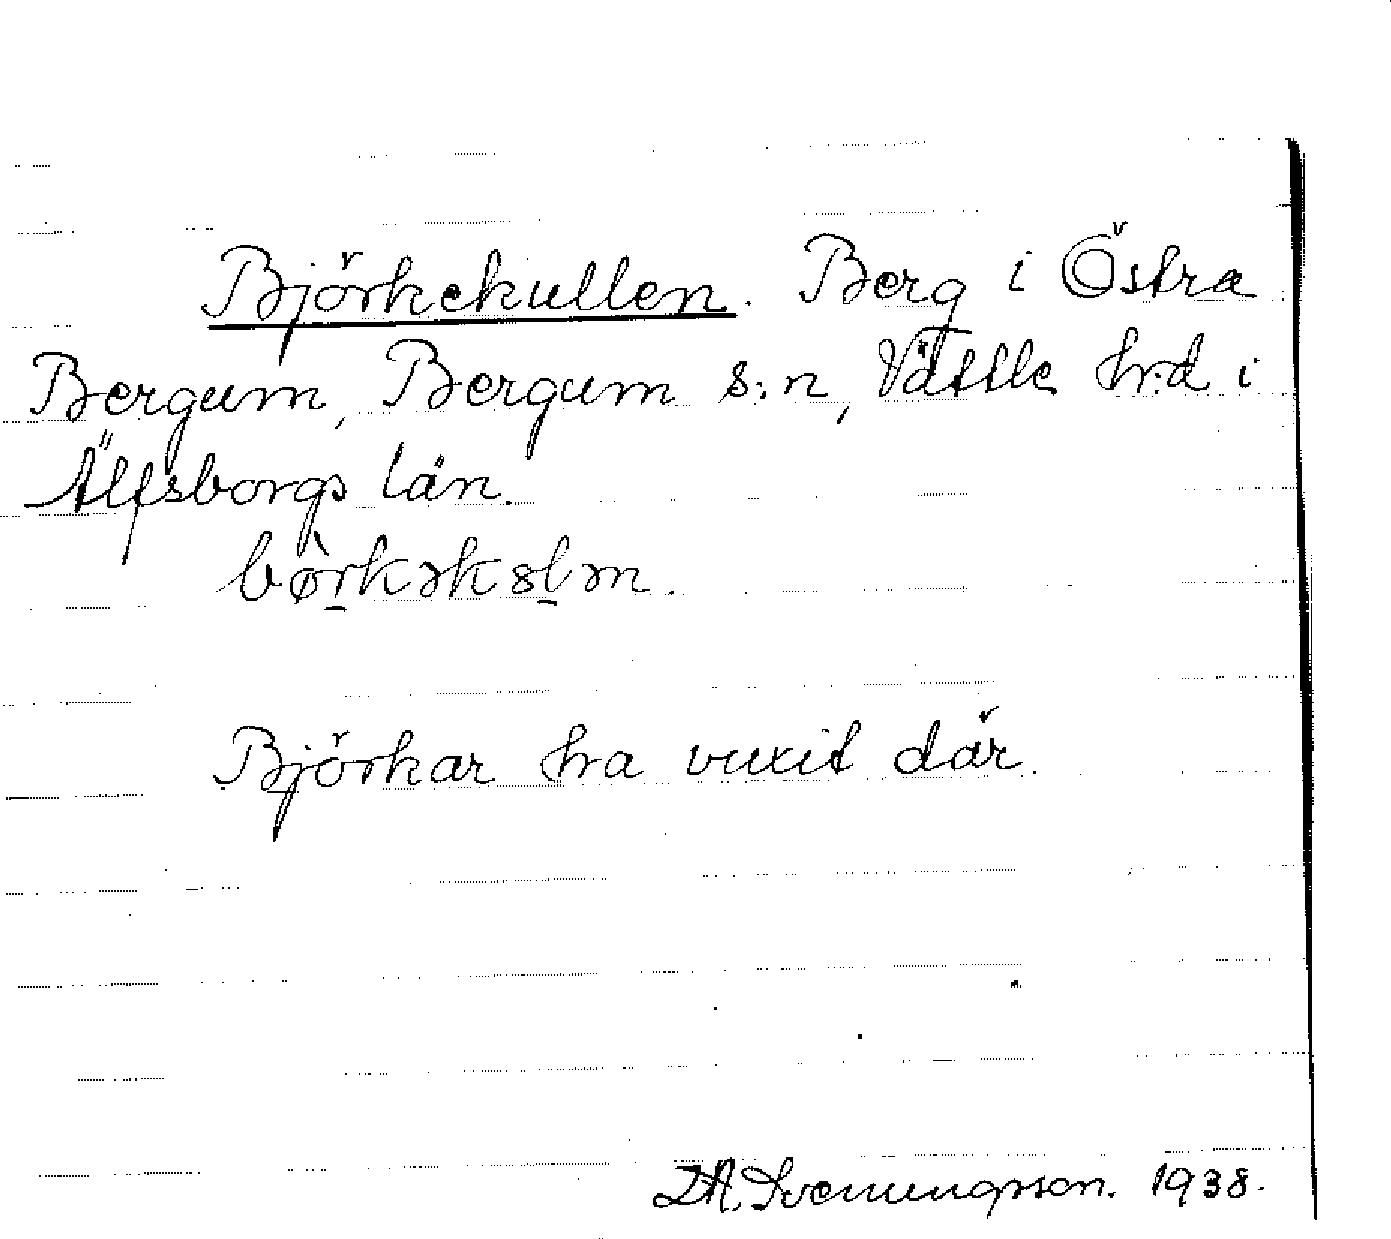 Björkekullen. Berg i Östra
Bergum, Bergum s:n, Vättle h:d i
Älfsborgs län.
Björkar ha vuxit där.
D.A. Svenungsson. 1938.